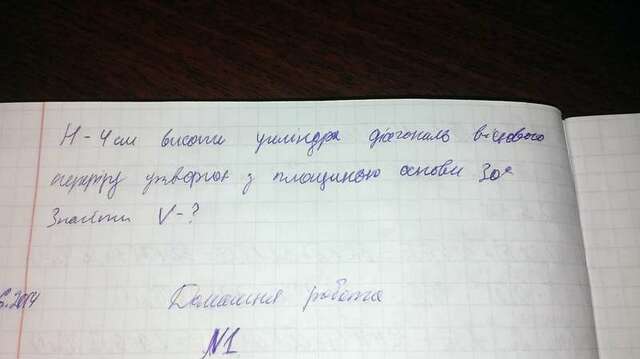 H - 4 см висота циліндра діагональ вісьового
перетру утворює з площиною основи 30°
Знайти V - ?
6.2014
Домашня робота
N1